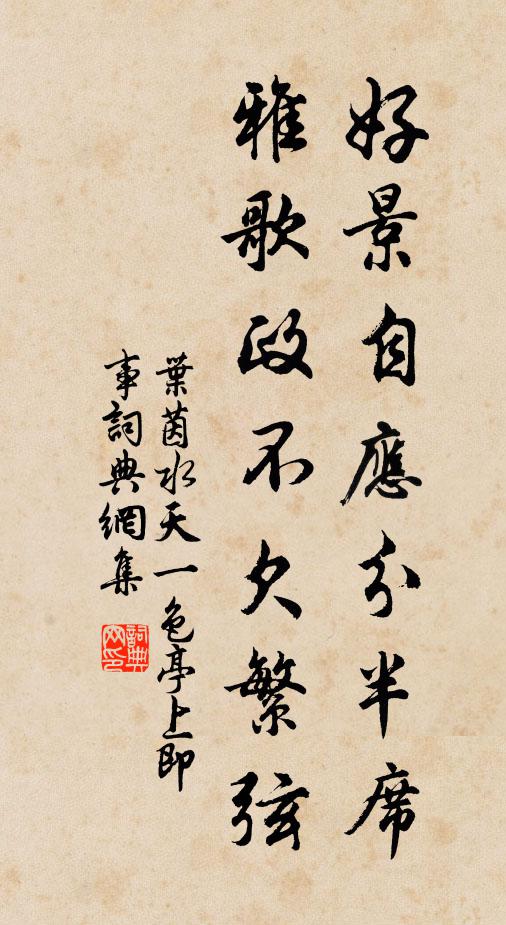 好景自應分半席
雅歌政不欠繁弦
葉茵水天一色亭上即
事詞典網集
詞典網印